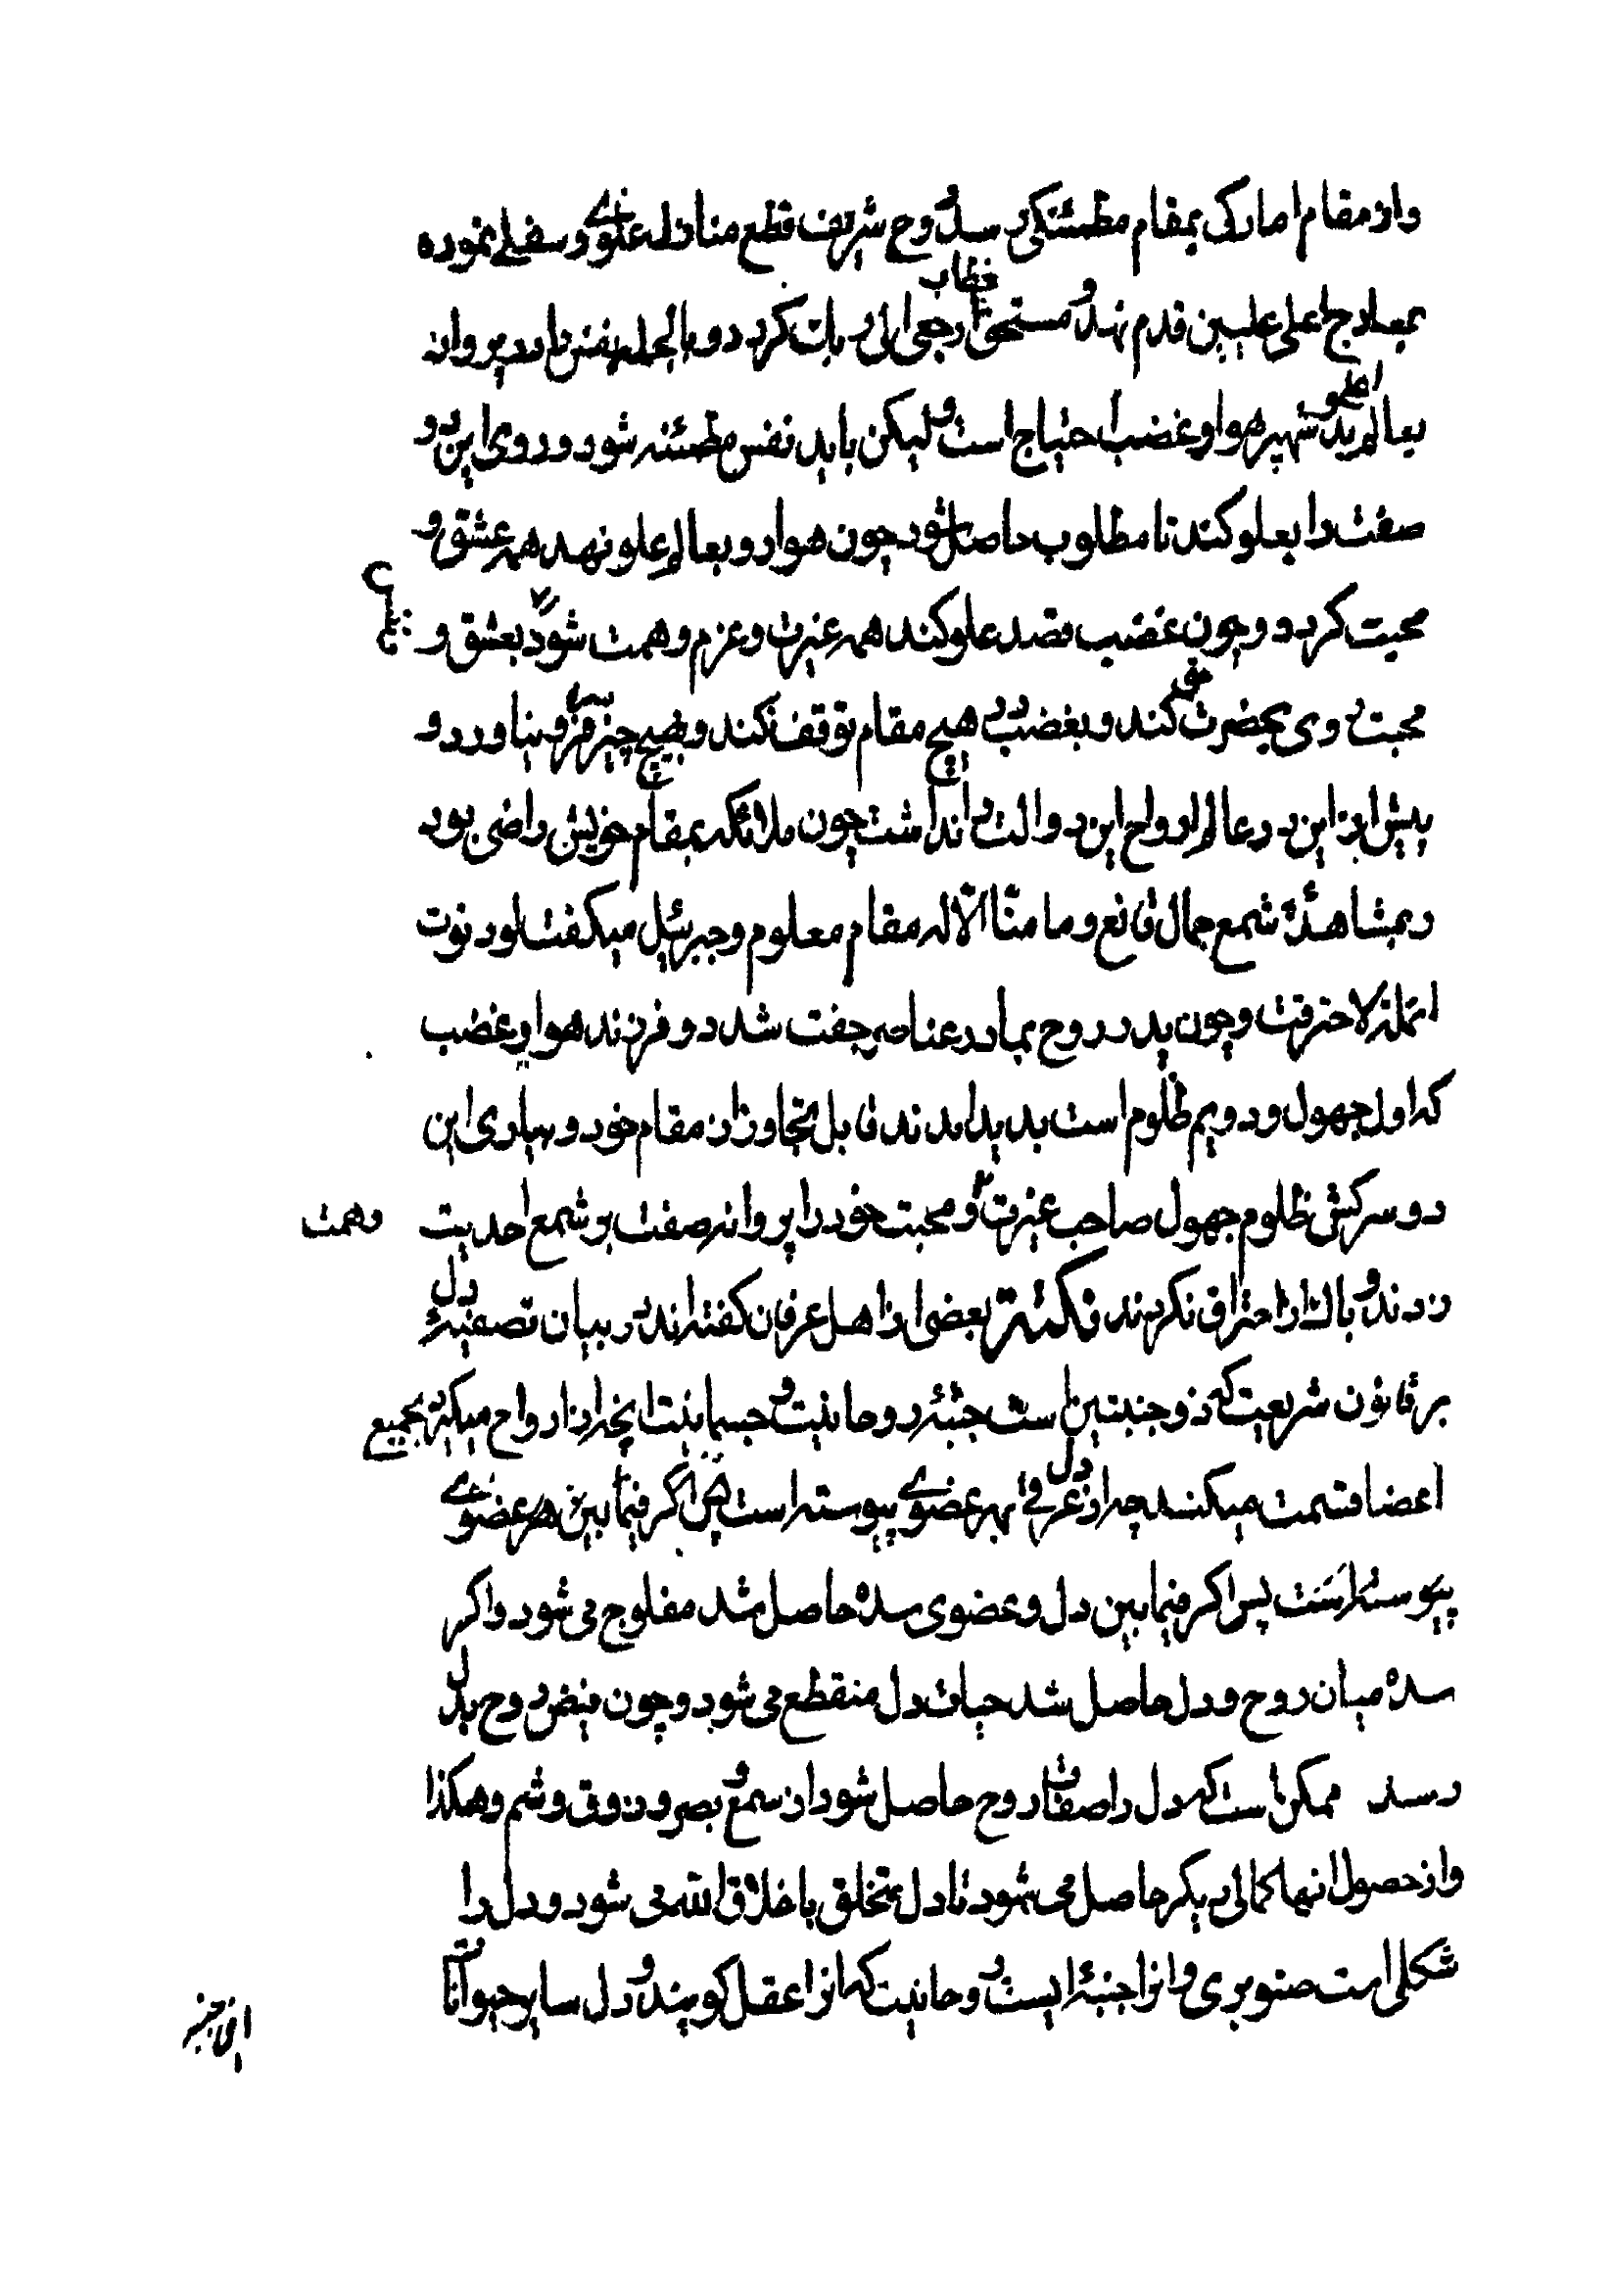 و از مقام امارکی بمقام مطمئنکی رسد روح شریف قطع منازل علوی و سفلی نموده
بمعارج اعلی علیین قدم نهد و مستحق خطاب ارجعی الی ربک کردد و بالجمله نفس را در پروانه
بعالم علوی بدو شهپر هوا و غضب احتیاج است و لیکن باید نفس مطمئنه شود و روی این دو
صفت را بعلو کند تا مطلوب حاصل شود چون هوا رو بعالم علو نهد همه عشق و
محبت کردد و چون غضب قصد علو کند همه غیرت و عزم و همت شود بعشق و
محبت روی بحضرت حق کند و بغضب در هیچ مقام توقف نکند و بهیچ چیز سر فرو نیاورد و
پیش از این در عالم ارواح این دو الت را نداشت چون ملائکه بمقام خویش راضی بود
و بمشاهدهٔ شمع جمال قانع و ما منّا الّا له مقام معلوم و جبرئیل میکفت لو دنوت
انملة لاحترقت و چون پدر روح بمادر عناصر جفت شد دو فرزند هوا و غضب
که اول جهول و دویم ظلوم است پدید امدند قابل تجاوز از مقام خود و بیاری این
دو سرکش ظلوم جهول صاحب غیرت و محبت خود را پروانه صفت بر شمع احدیت
وهمت
زدند و باک از احتراق نکردند نکتة بعضی از اهل عرفان کفته‌اند در بیان تصفیهٔ دل
بر قانون شریعت که ذو جنبتین است جنبهٔ روحانیت و جسمانیت انچه از ارواح میکیرد بجمیع
اعضا قسمت میکند چه از دل عرقی بهر عضوی پیوسته است پس اکر فیما بین هر عضوی
پیوسته است پس اکر فیما بین دل و عضوی سده حاصل شد مفلوج می شود و اکر
سده میان روح و دل حاصل شد حیات دل منقطع می شود و چون فیض روح بدل
رسد ممکن است که دل را صفات روح حاصل شود از سمع و بصر و ذوق و شم و هکذا
و از حصول انها کمالی دیکر حاصل می شود تا دل متخلق باخلاق الله می شود و دل را
شکلی است صنوبری و انرا جنبهٔ ایست روحانیت که انرا عقل کویند و دل سایر حیوانات را
این جنبه